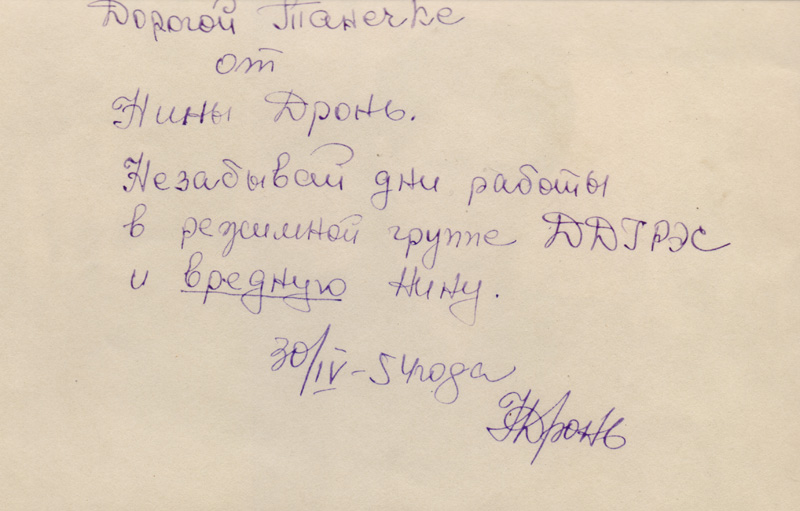 Дорогой Танечке
от
Нины Дронь.
Незабывай дни работы
в режимной группе ДДГРЭС
и вредную Нину.
30/IV-54 года
НДронь